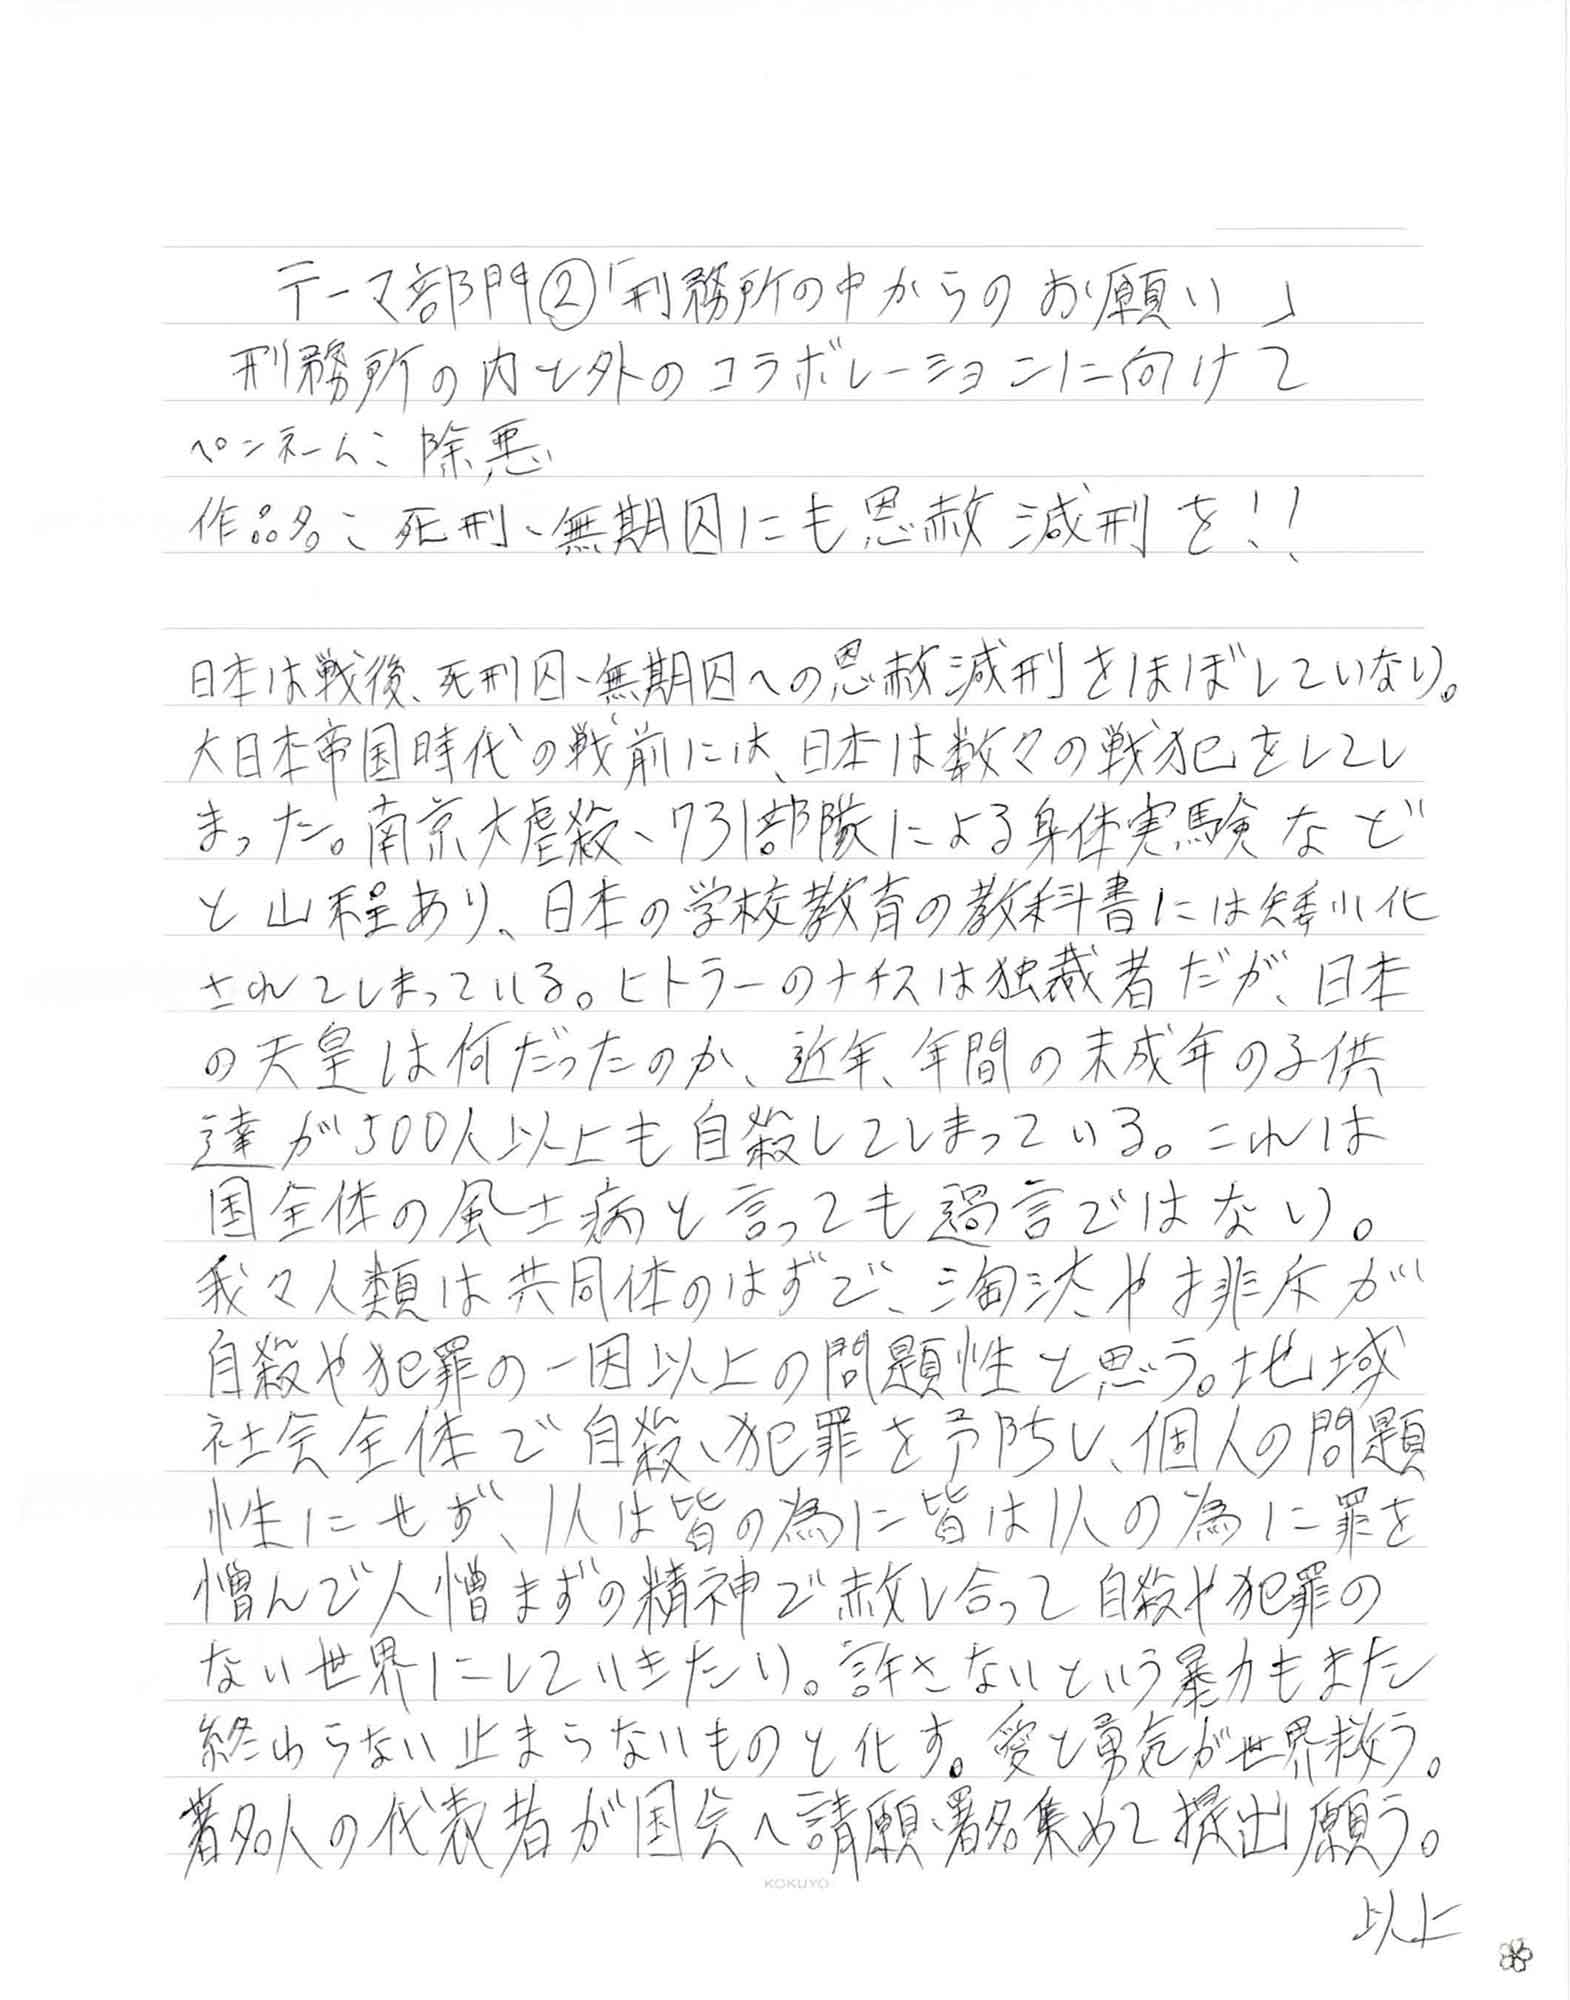 テーマ部門②「刑務所の中からのお願い」
刑務所の内と外のコラボレーションに向けて
ペンネーム：除悪
作品名：死刑、無期囚にも恩赦減刑を！！
日本は戦後、死刑囚、無期囚への恩赦減刑をほぼしていない。
大日本帝国時代の戦前には、日本は数々の戦犯をしてし
まった。南京大虐殺、731部隊による身体実験など
と山程あり、日本の学校教育の教科書には矮小化
されてしまっている。ヒトラーのナチスは独裁者だが、日本
の天皇は何だったのか、近年、年間の未成年の子供
達が500人以上も自殺してしまっている。これは
国全体の風土病と言っても過言ではない。
我々人類は共同体のはずで、淘汰や排斥が
自殺や犯罪の一因以上の問題性と思う。地域
社会全体で自殺、犯罪を予防し、個人の問題
性にせず、1人は皆の為に皆は1人の為に罪を
憎んで人憎まずの精神で赦し合って自殺や犯罪の
ない世界にしていきたい。許さないという暴力もまた
終わらない止まらないものと化す。愛と勇気が世界救う。
著名人の代表者が国会へ請願署名集めて提出願う。
KOKUYO
以上